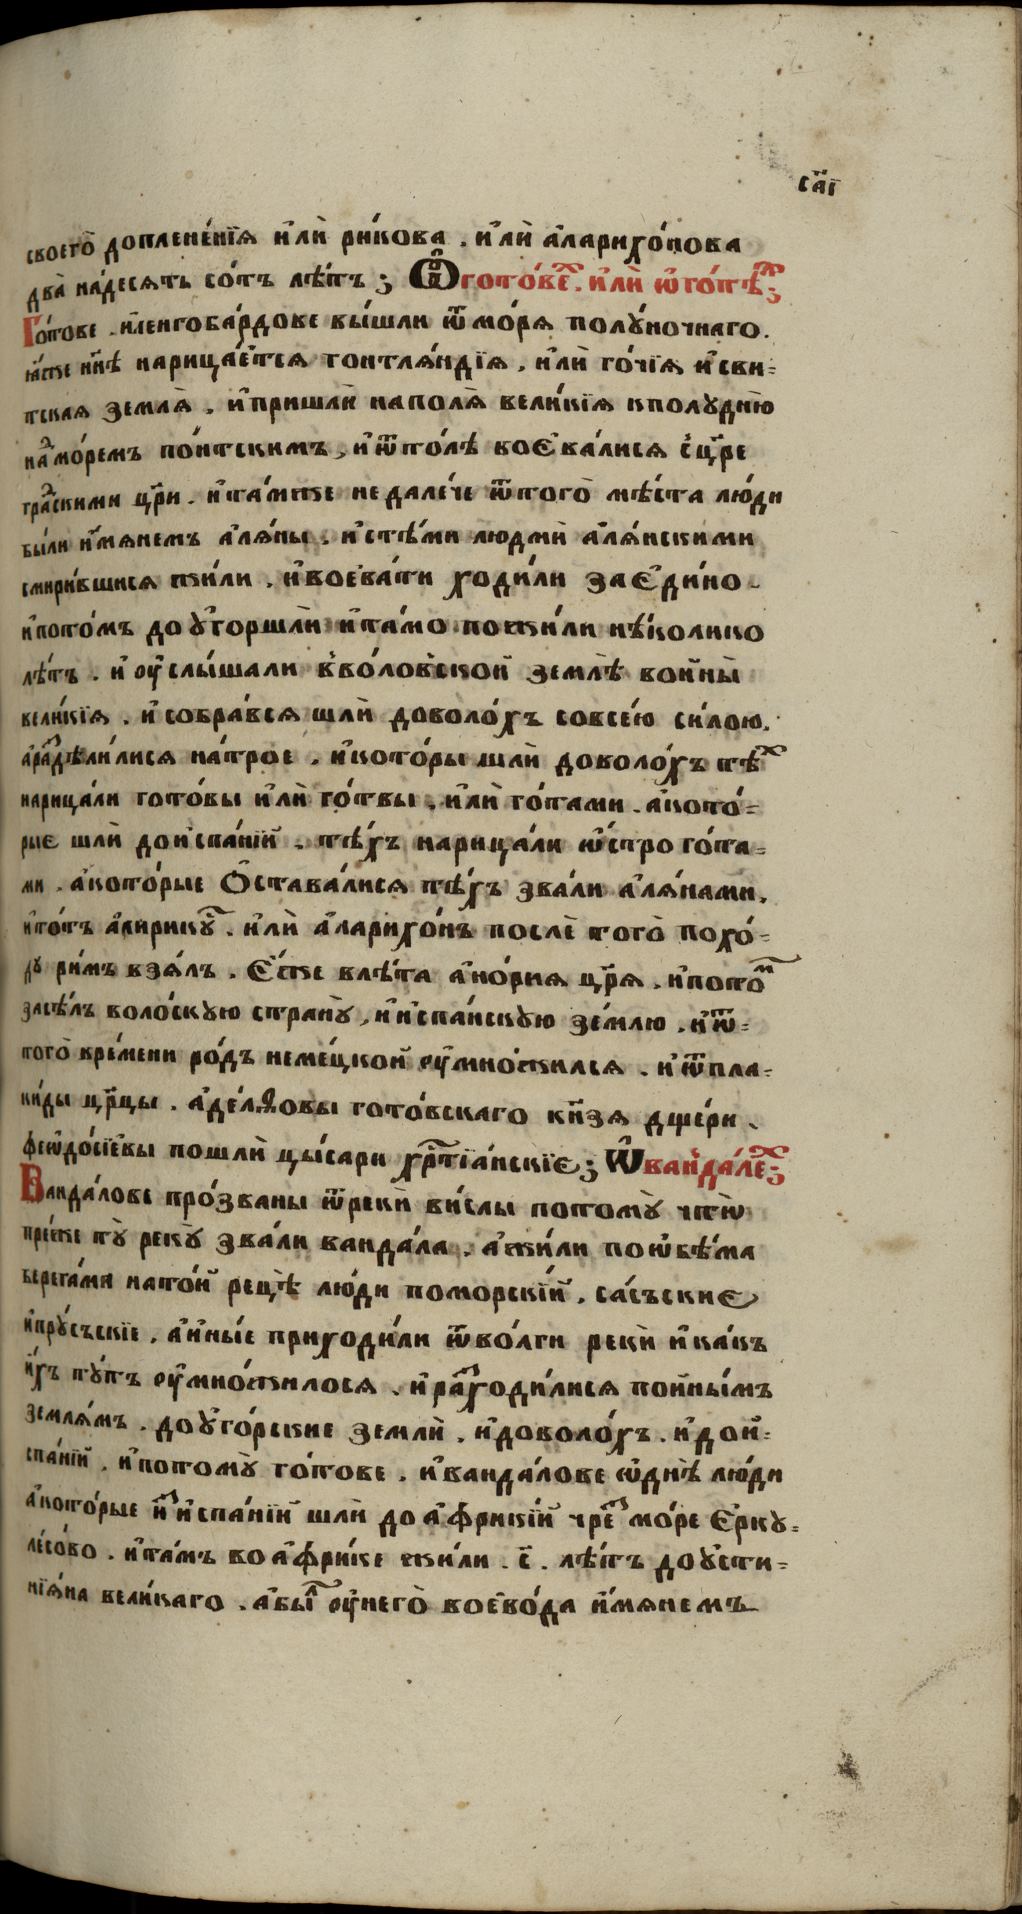 с҃аі
своего̀ допленен́їѧ и҆лѝ ри́кова . и҆лѝ а҆ларихо́нова
два̀ на́десѧть со́тъ лѣ́тъ ; Ѡ҆ гото́вех . и҆лѝ ѡ҆ го́тѣх ;
Го́тове . и҆ленгоба́рдове вы́шли ѿ мо́рѧ полу́ночнаго .
ꙗ҆́же нн҃ѣ нарица́етсѧ гоитлѧ́ндїѧ , и҆лѝ го́чїѧ и҆ сви=
тскаѧ землѧ̀ . и҆ пришлѝ на полѧ̀ вели́кїѧ к полу́днїю
на мо́ремъ по́нтскимъ , и҆ ѿто́лѣ воева́лисѧ с̾ цр҃ре
гра́скими цр҃и . и҆ та́мже недале́че ѿ того̀ мѣ́ста лю́ди
бы́ли и҆́мѧнемъ а҆лѧ́ны . и҆ с тѣ́ми людмѝ а҆лѧ́нскими
смири́вшисѧ жи́ли . и҆ воева́ти ходи́ли за еди́но .
и҆ пото́мъ до у҆́горшлѝ и҆ та́мо пожи́ли нѣ́колико
лѣ́тъ . и҆ ѹ҆слы́шали в̾ воло́вской землѣ̀ войны̀
вели́кїѧ . и҆ собра́всѧ шлѝ до воло́хъ со всею си́лою .
а҆ раздѣли́лисѧ на́трое . и҆ кото́ры шлѝ до воло́хъ тѣх
нарица́ли гото́вы и҆лѝ го́твы . и҆лѝ го́тами . а҆ кото́=
рые шлѝ до и҆спа́нїй . тѣ́хъ нарица́ли ѡ҆́стро го́та=
ми . а҆ кото́рые Ѻ҆става́лисѧ тѣ́хъ зва́ли а҆лѧ́нами .
и҆ то́тъ а҆лирику . и҆лѝ а҆ларихо́нъ послѐ того̀ похо́=
ду ри́мъ взѧ́лъ . Е҆́ще в лѣ́та а҆но́риѧ цр҃ѧ . и҆ пото́м
засѣ́лъ воло́скую страну̀ , и҆ и҆спа́нскую зе́млю . и҆ ѿ=
того̀ вре́мени ро́дъ неме́цкой ѹ҆мно́жилсѧ . и҆ ѿ пла=
ки́ды цр҃цы . а҆де́лѳовы гото́вскаго кн҃зѧ дще́ри .
феѡдо́сїевы пошлѝ цы́сари хр҃тїа́нскїе ; Ѡ҆ ванда́лех ;
Ванда́лове про́званы ѿ рекѝ ви́слы потому̀ что̀
пре́же ту̀ реку̀ зва́ли вандала . а҆ жи́ли по ѡ҆бѣ́ма
берега́ма на то́й рецѣ̀ лю́ди помо́рскїй . са́съские
и҆ пру́съскїе . а҆ и҆ны́е приходи́ли ѿ во́лги рекѝ и҆ ка́къ
и҆́хъ ту́тъ ѹ҆мно́жилосѧ . и҆ разходи́лисѧ по и҆ны́мъ
землѧ́мъ . до у҆го́рские землѝ . и҆ до воло́хъ . и҆ до и=
спа́нїй . и҆ потому̀ го́тове . и҆ ванда́лове ѡ҆днѣ̀ лю́ди
а҆ кото́рые из и҆спа́нїй шлѝ до а҆фрикїй чрез мо́ре Е҆рку=
лесо́во . и҆ та́мъ во а҆фри́ке жи́ли . с҃ . лѣ́тъ до у҆сти=
нїѧ́на вели́каго . а҆ бы́л ѹ҆ него̀ воево́да и҆́мѧнемъ